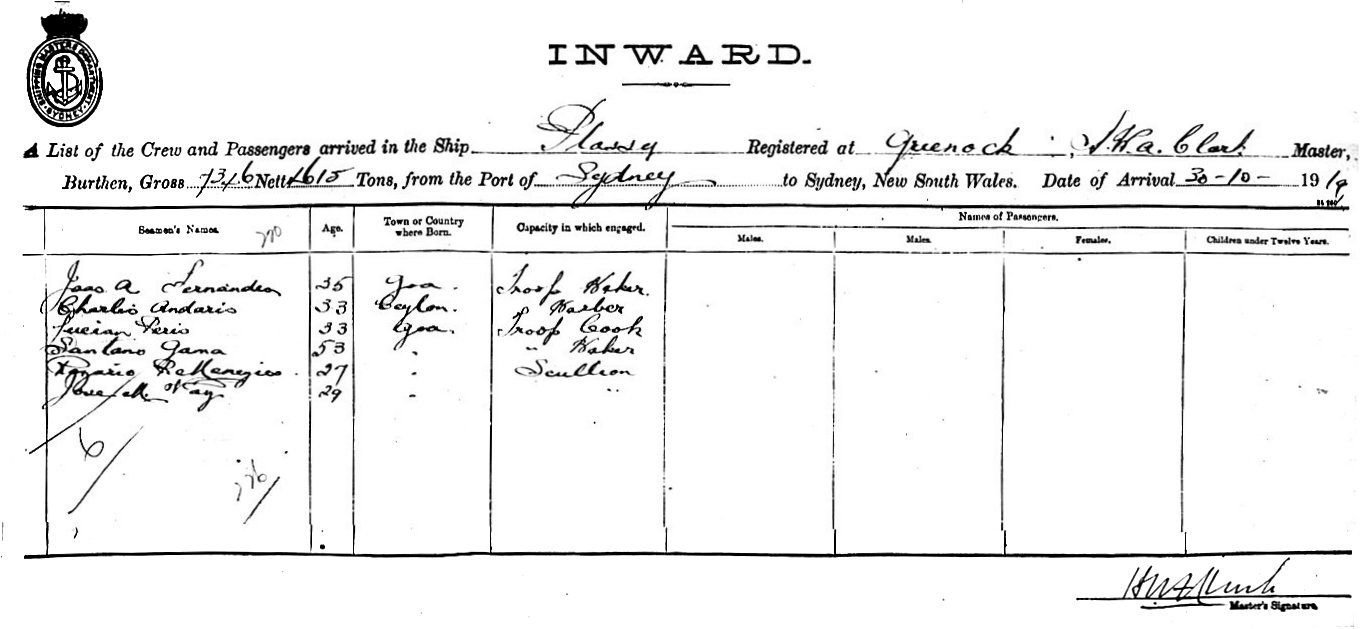 SHIPPING MASTERS DEPARTMENT SYDNEY
INWARD.
A List of the Crew and Passengers arrived in the Ship Plassy Registered at Greenock, Clark Master,
Burthen, Gross 7346 Nett 4615 Tons, from the Port of Sydney to Sydney, New South Wales. Date of Arrival 30-10- 1919
Seamen's Names. Age. Town or Country where Born. Capacity in which engaged. Names of Passengers.
Males. Males. Females. Children under Twelve Years.
Joao A Fernandes 35 Goa. Troop Baker.
Charlis Andaris 33 Ceylon. Barber
Lucian Peris 33 Goa. Troop Cook
Santano Gama 53 " " Baker
Rozario 27 " Scullion
29 " "
6
Master's Signature